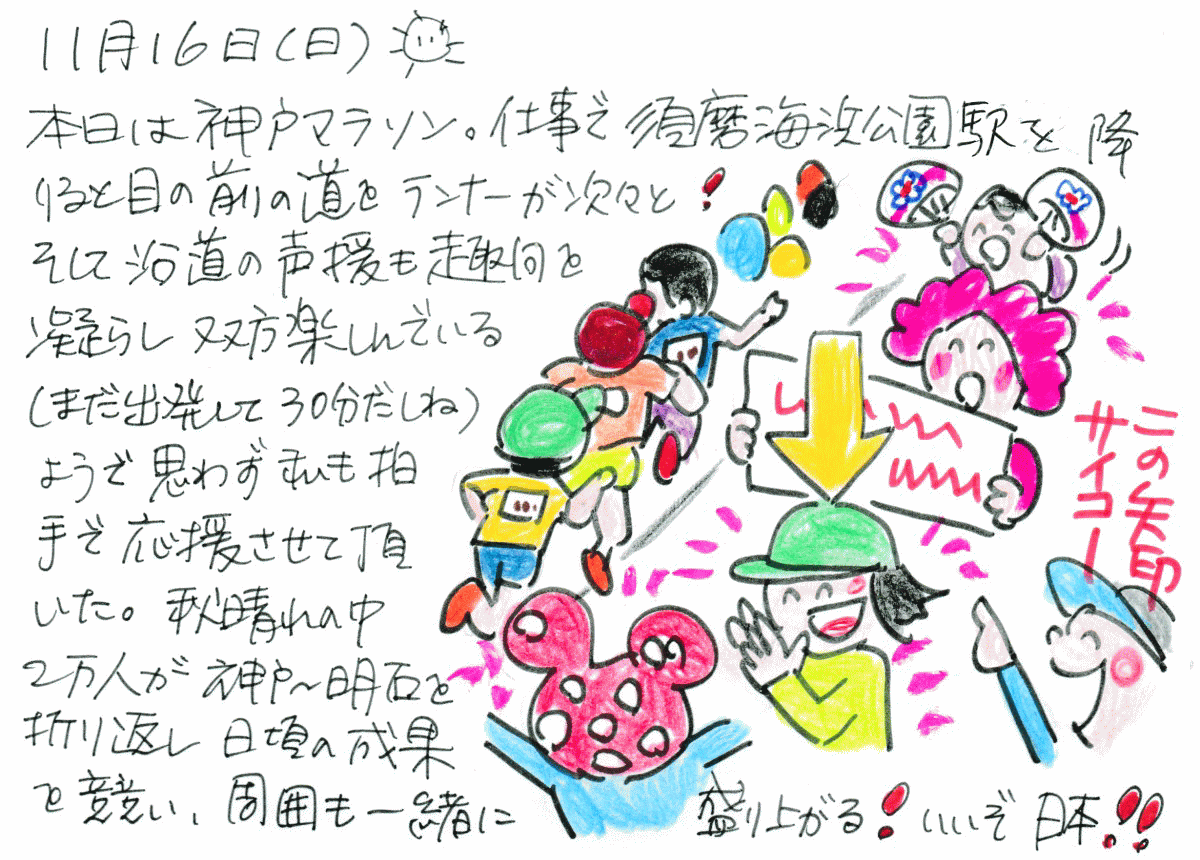 11月16日(日)
本日は神戸マラソン。仕事で須磨海浜公園駅を降
りると目の前の道をランナーが次々と!
そして沿道の声援も趣向を
凝らし双方楽しんでいる
(まだ出発して30分だしね)
ようで思わず私も拍
手で応援させて頂
いた。秋晴れの中
2万人が神戸~明石を
折り返し日頃の成果
を競い、周囲も一緒に盛り上がる!いいぞ日本!!
この矢印
サイコー